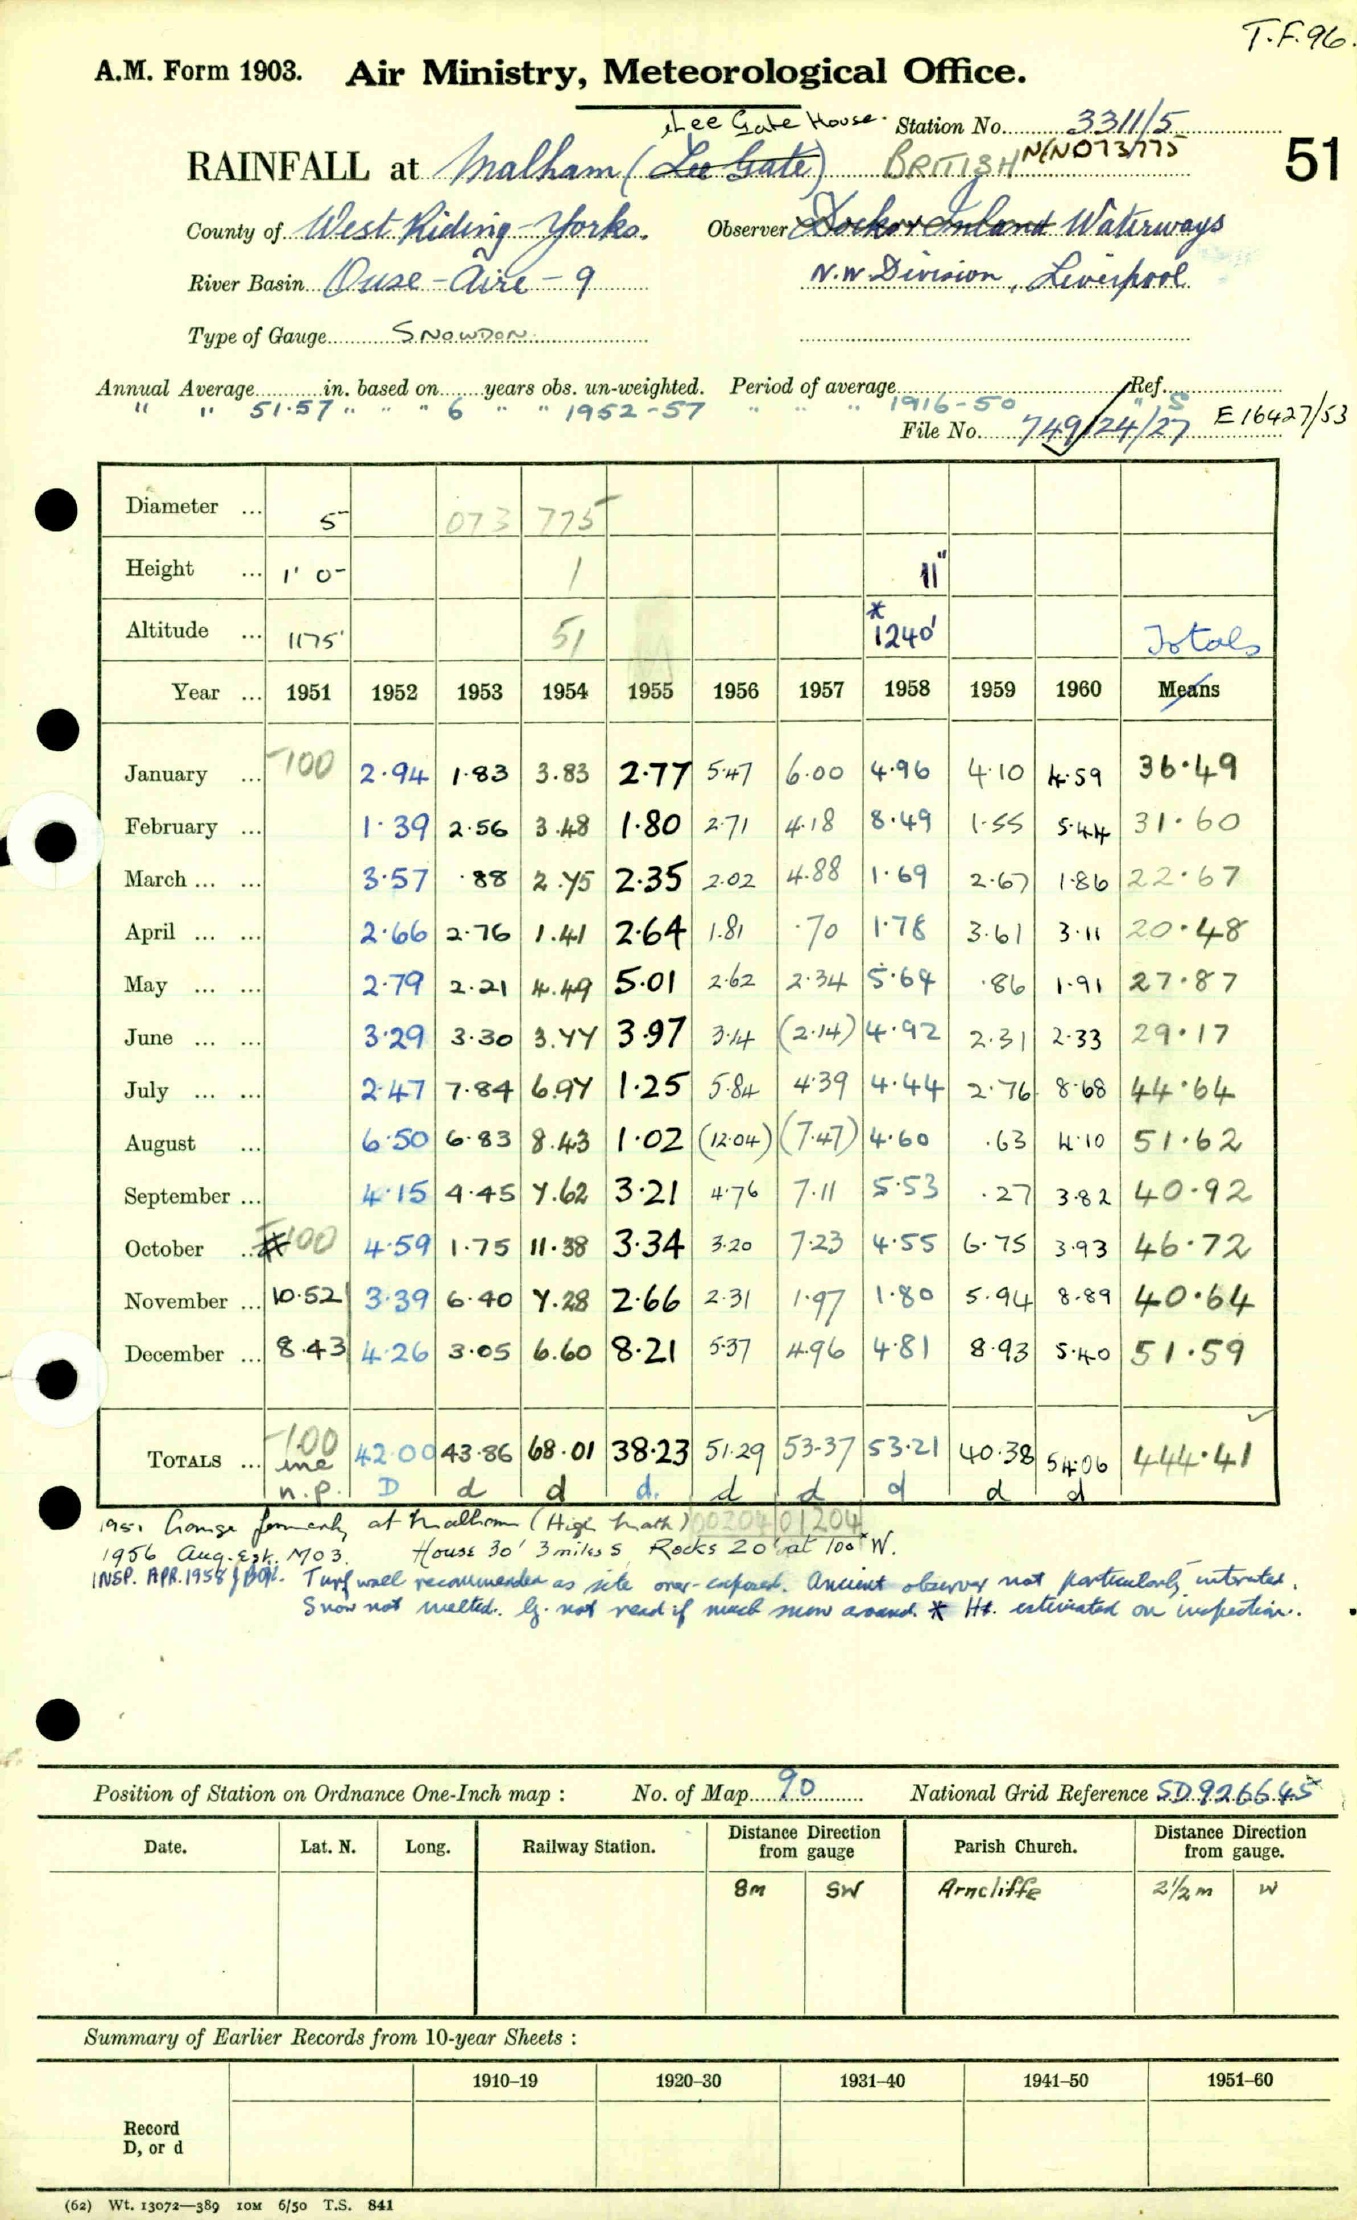 T.F.96.
A.M. Form 1903. Air Ministry, Meteorological Office.
Lee Gate House. Station No. 3311/5
RAINFALL at Malham (Lee Gate) BRITISH N/N073775 51
County of West Riding - Yorks. Observer Dock & Inland Waterways
River Basin Ouse - Aire - 9 N.W Division, Liverpool
Type of Gauge SNOWDON
Annual Average in. based on years obs. un-weighted. Period of average Ref.
" " 51.57 " " " 6 " " 1952-57 " " " 1916-50 " 5
File No. 749/24/27 E16427/53
Diameter ... 5 073 775
Height ... 1' 0 1 11"
Altitude ... 1175' 51 * 1240' Totals
Year ... 1951 1952 1953 1954 1955 1956 1957 1958 1959 1960 Means
January ... -100 2.94 1.83 3.83 2.77 5.47 6.00 4.96 4.10 4.59 36.49
February ... 1.39 2.56 3.48 1.80 2.71 4.18 8.49 1.55 5.44 31.60
March ... ... 3.57 .88 2.75 2.35 2.02 4.88 1.69 2.67 1.86 22.67
April ... ... 2.66 2.76 1.41 2.64 1.81 .70 1.78 3.61 3.11 20.48
May ... ... 2.79 2.21 4.49 5.01 2.62 2.34 5.64 .86 1.91 27.87
June ... ... 3.29 3.30 3.77 3.97 3.14 (2.14) 4.92 2.31 2.33 29.17
July ... ... 2.47 7.84 6.97 1.25 5.84 4.39 4.44 2.76 8.68 44.64
August ... 6.50 6.83 8.43 1.02 (12.04) (7.47) 4.60 .63 4.10 51.62
September ... 4.15 4.45 7.62 3.21 4.76 7.11 5.53 .27 3.82 40.92
October ... -100 4.59 1.75 11.38 3.34 3.20 7.23 4.55 6.75 3.93 46.72
November ... 10.52 3.39 6.40 7.28 2.66 2.31 1.97 1.80 5.94 8.89 40.64
December ... 8.43 4.26 3.05 6.60 8.21 5.37 4.96 4.81 8.93 5.40 51.59
TOTALS ... -100 42.00 43.86 68.01 38.23 51.29 53.37 53.21 40.38 54.06 444.41
inc
n.p. D d d d. d d d d d
1951 Gauge formerly at Malham (High Trath) 00204 01204
1956 Aug. Est. MO3. House 30' 3 miles S, Rocks 20' at 100 W.
INSP. APR. 1958 Turf wall recommended as site over-exposed. Ancient observer not particularly interested.
Snow not melted. G. not read if much snow around. * Ht. estimated on inspection.
Position of Station on Ordnance One-Inch map : No. of Map 90 National Grid Reference SD.926645
Date. Lat. N. Long. Railway Station. Distance Direction from gauge Parish Church. Distance Direction from gauge.
8m SW Arncliffe 2½m W
Summary of Earlier Records from 10-year Sheets :
1910–19 1920–30 1931–40 1941–50 1951–60
Record
D, or d
(62) Wt. 13072—389 10M 6/50 T.S. 841